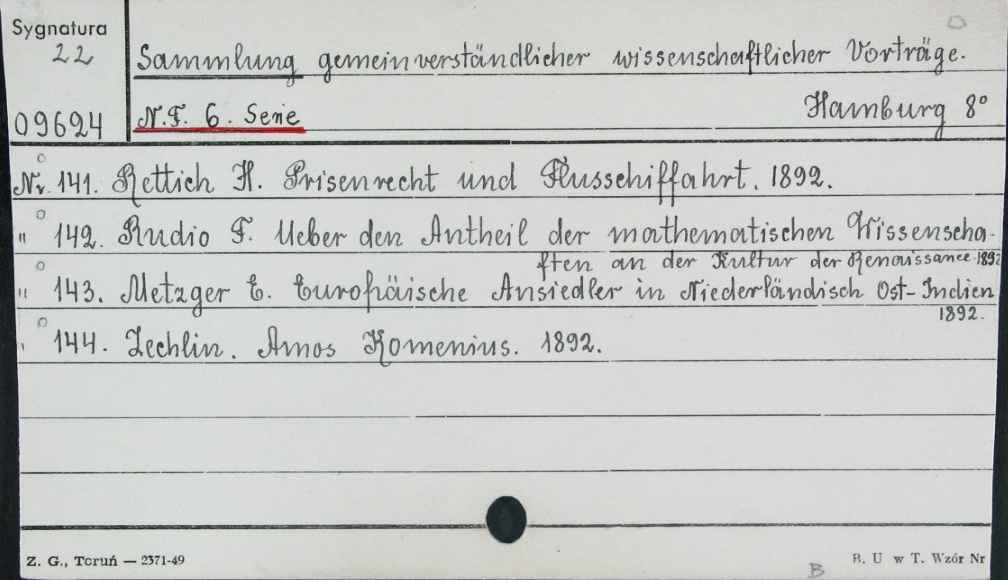 Sygnatura
22
09624
Sammlung gemeinverständlicher wissenschaftlicher Vorträge.
N.F. 6. Serie
Hamburg 8°
Nr. 141. Rettich H. Prisenrecht und Flusschiffahrt. 1892.
" 142. Rudio F. Ueber den Antheil der mathematischen Wissenscha-
ften an der Kultur der Renaissance 1892
" 143. Metzger E. Europäische Ansiedler in Niederländisch Ost-Indien
1892.
" 144. Zechlin. Amos Komenius. 1892.
Z. G., Toruń — 2371-49
B. U w T. Wzór Nr
B